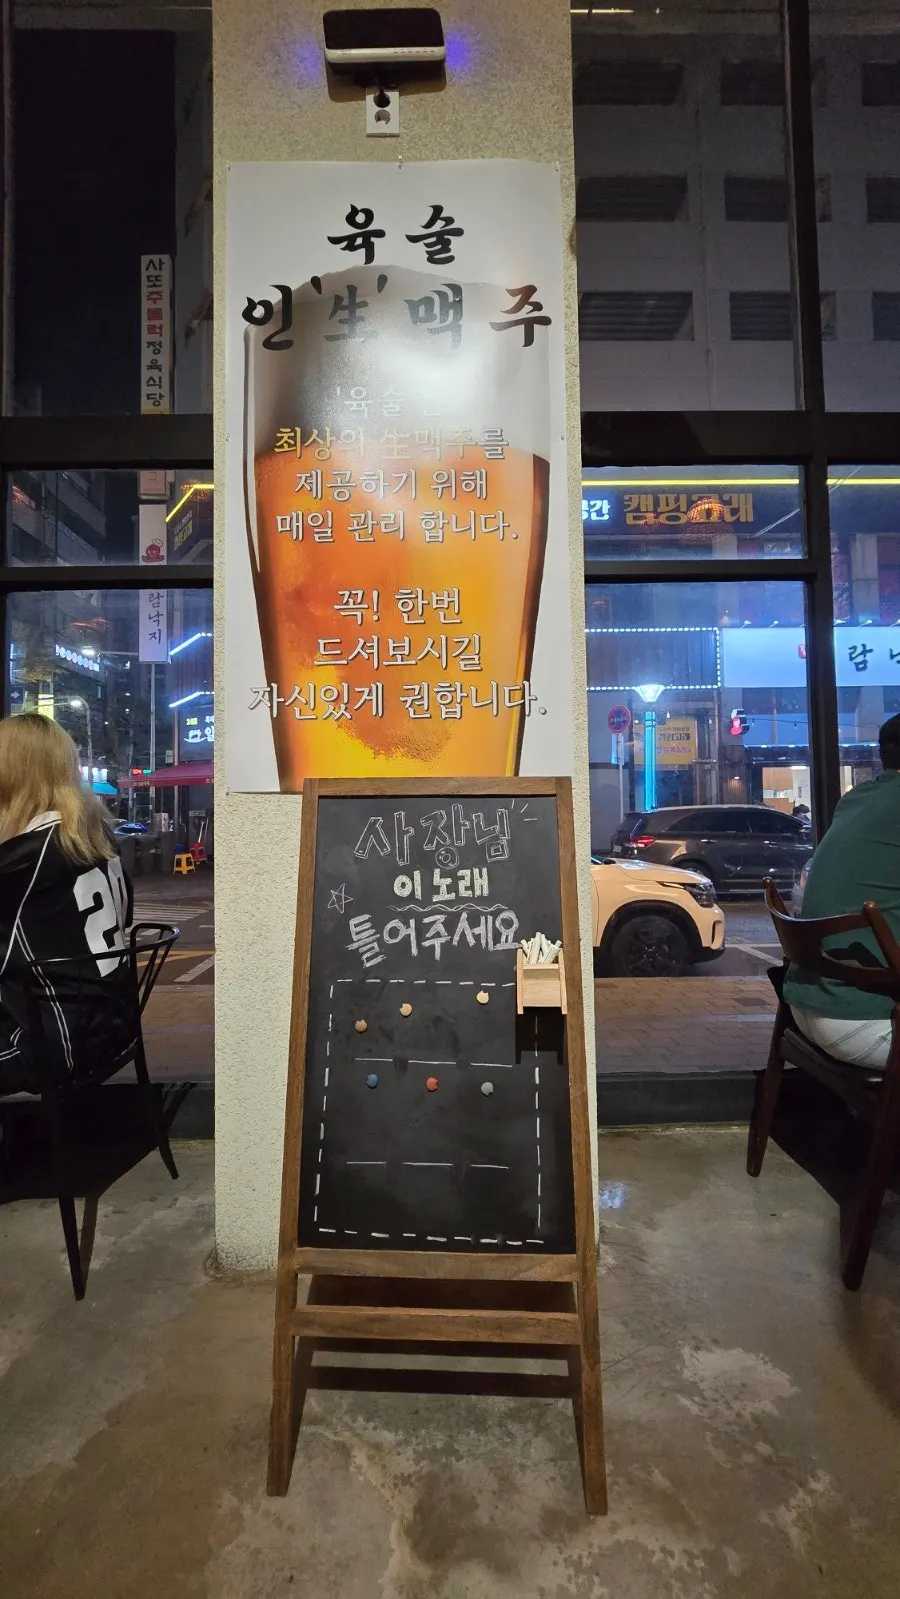 육술
인'生'맥주
'육술
최상의 生맥주를
제공하기 위해
매일 관리 합니다.
꼭! 한번
드셔보시길
자신있게 권합니다.
사장님
이 노래
틀어주세요
사또주물럭정육식당
람낙지
캠핑고래
람
20